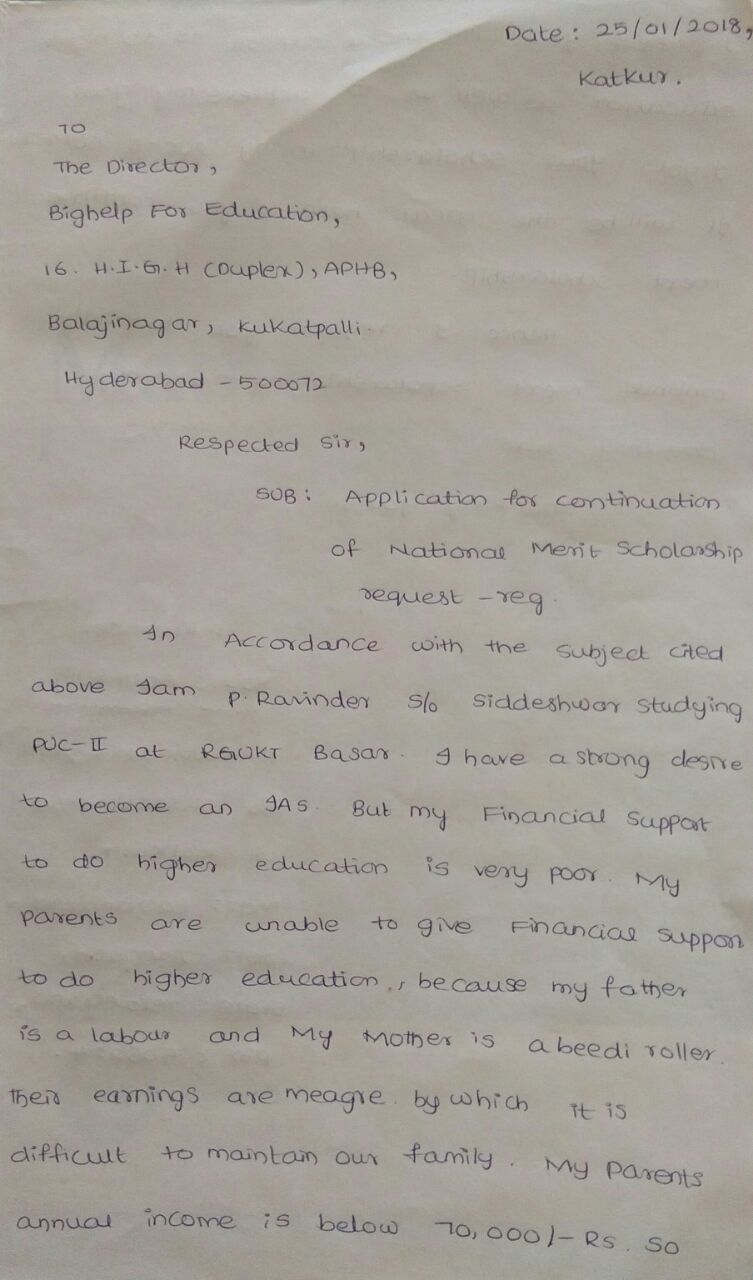 Date : 25/01/2018,
Katkur.
TO
The Director,
Bighelp For Education,
16. H.I.G.H (Duplex), APHB,
Balajinagar, Kukatpalli.
Hyderabad - 500072
Respected Sir,
SUB : Application for continuation
of National Merit Scholarship
request -reg.
In Accordance with the subject cited
above Iam P. Ravinder S/o Siddeshwar studying
PUC-II at RGUKT Basar. I have a strong desire
to become an IAS. But my Financial Support
to do higher education is very poor. My
parents are unable to give Financial support
to do higher education, because my father
is a labour and My Mother is a beedi roller.
Their earnings are meagre by which it is
difficult to maintain our family. My parents
annual income is below 70,000/- Rs. So